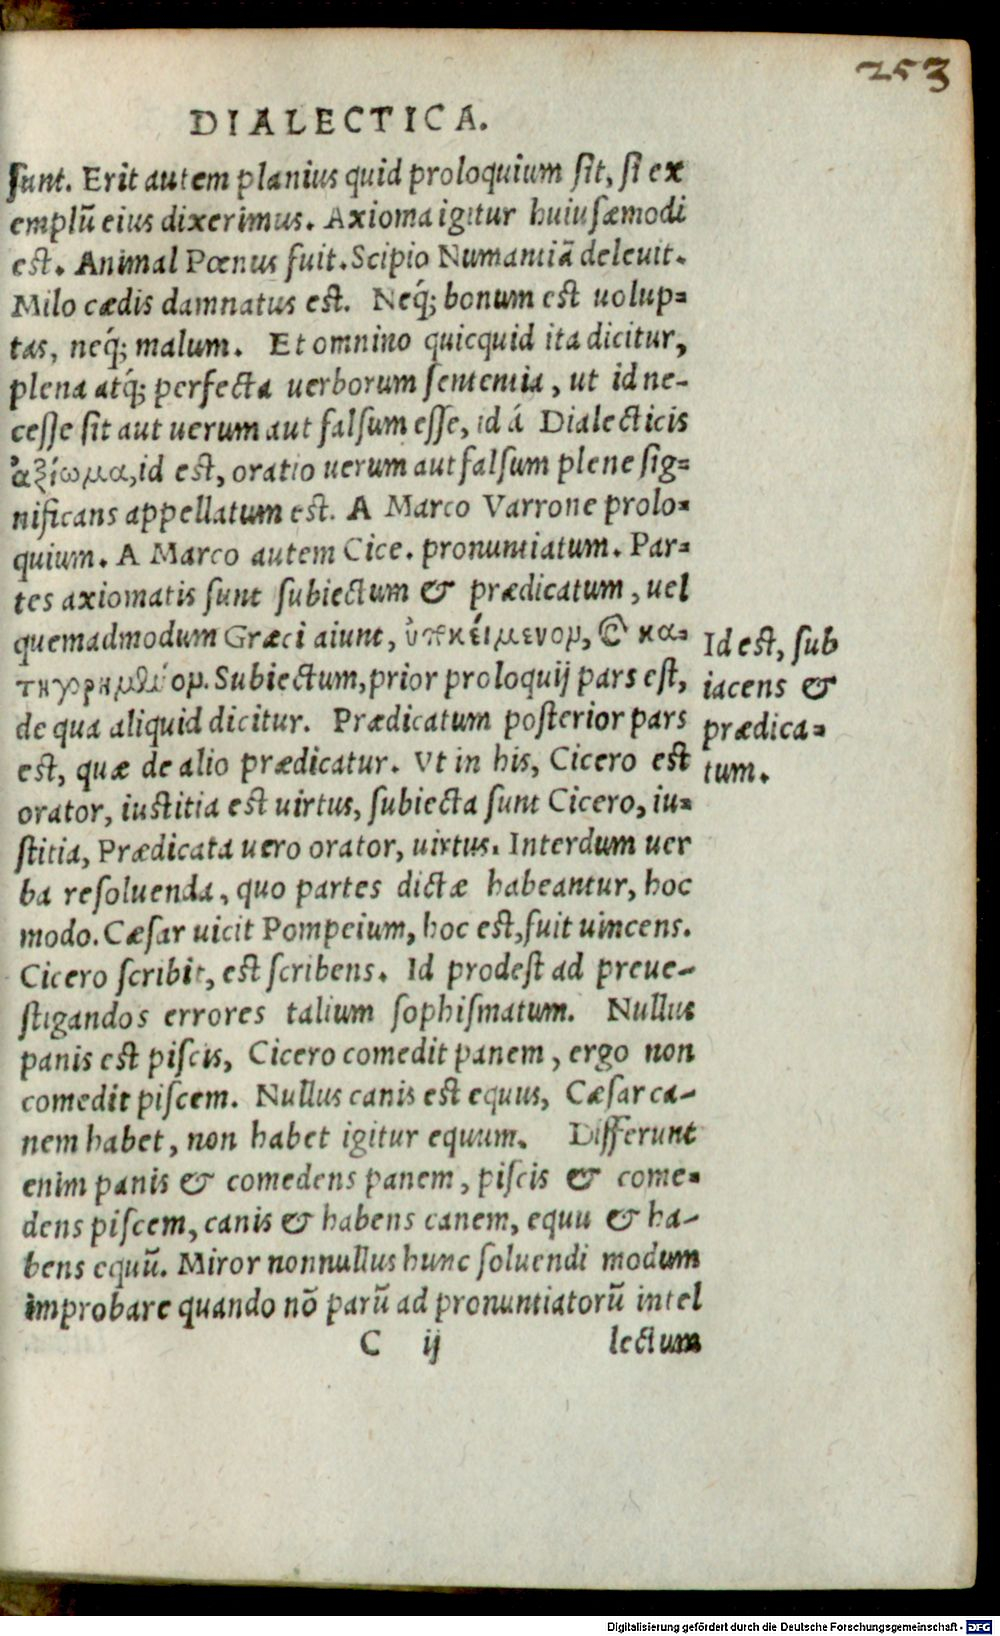 253
DIALECTICA.
sunt. Erit autem planius quid proloquium sit, si ex
emplũ eius dixerimus. Axioma igitur huiusæmodi
est. Animal Pœnus fuit. Scipio Numantiã deleuit.
Milo cædis damnatus est. Neq́; bonum est uolup=
tas, neq́; malum. Et omnino quicquid ita dicitur,
plena atq́; perfecta uerborum sententia, ut id ne-
cesse sit aut uerum aut falsum esse, id á Dialecticis
ἀξίωμα, id est, oratio uerum aut falsum plene sig=
nificans appellatum est. A Marco Varrone prolo=
quium. A Marco autem Cice. pronuntiatum. Par=
tes axiomatis sunt subiectum & prædicatum, uel
quemadmodum Græci aiunt, ὑποκείμενον, & κα=
τηγορημένον. Subiectum, prior proloquij pars est,
de qua aliquid dicitur. Prædicatum posterior pars
est, quæ de alio prædicatur. Vt in his, Cicero est
orator, iustitia est uirtus, subiecta sunt Cicero, iu=
stitia, Prædicata uero orator, uirtus. Interdum uer
ba resoluenda, quo partes dictæ habeantur, hoc
modo. Cæsar uicit Pompeium, hoc est, fuit uincens.
Cicero scribit, est scribens. Id prodest ad preue-
stigandos errores talium sophismatum. Nullus
panis est piscis, Cicero comedit panem, ergo non
comedit piscem. Nullus canis est equus, Cæsar ca-
nem habet, non habet igitur equum. Differunt
enim panis & comedens panem, piscis & come=
dens piscem, canis & habens canem, equu & ha-
bens equũ. Miror nonnullus hunc soluendi modum
improbare quando nõ parũ ad pronuntiatorũ intel
C ij lectum
Id est, sub
iacens &
prædica=
tum.
Digitalisierung gefördert durch die Deutsche Forschungsgemeinschaft - DFG